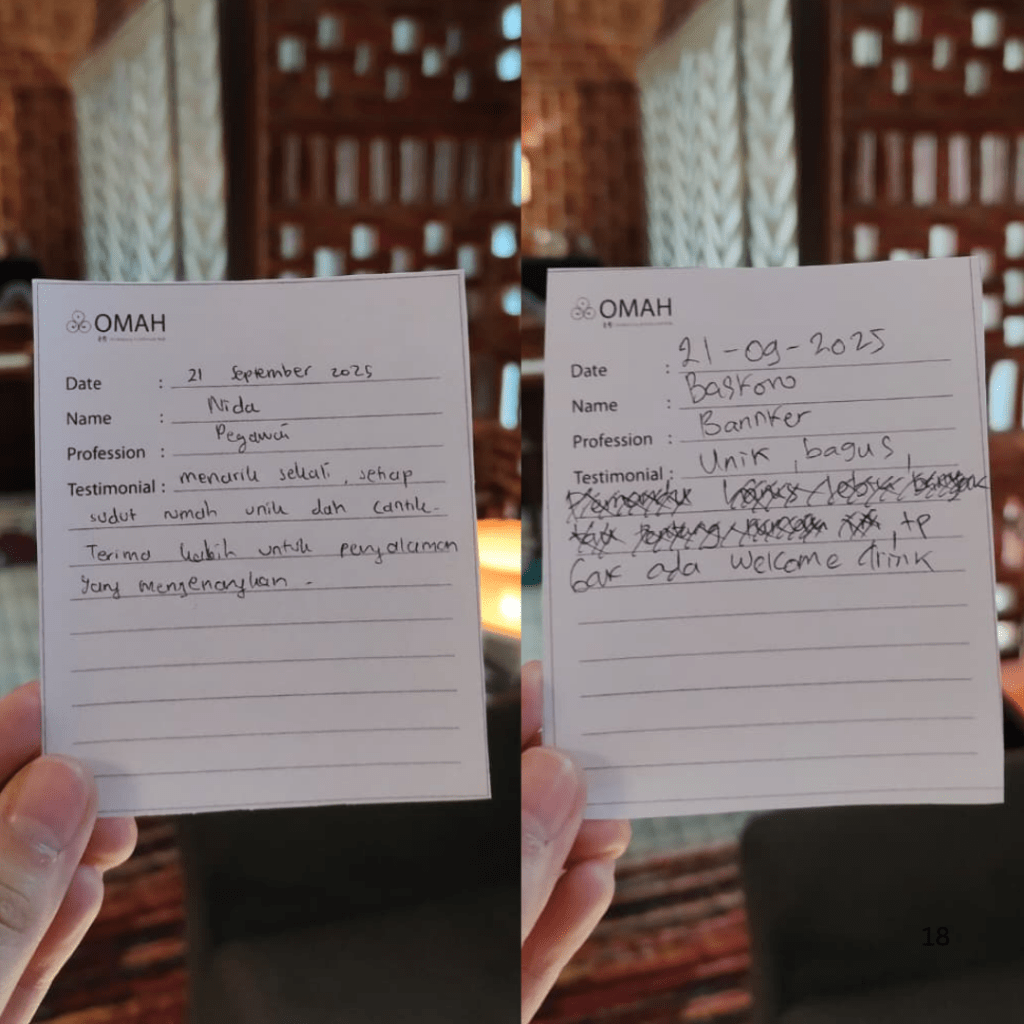 OMAH
Date : 21 September 2025
Name : Nida
Profession : Pegawai
Testimonial : menarik sekali, setiap
sudut rumah unik dan cantik.
Terima kasih untuk pengalaman
yang menyenangkan.
OMAH
Date : 21-09-2025
Name : Baskoro
Profession : Bannker
Testimonial : Unik, bagus,
, tp
Gak ada welcome drink
18